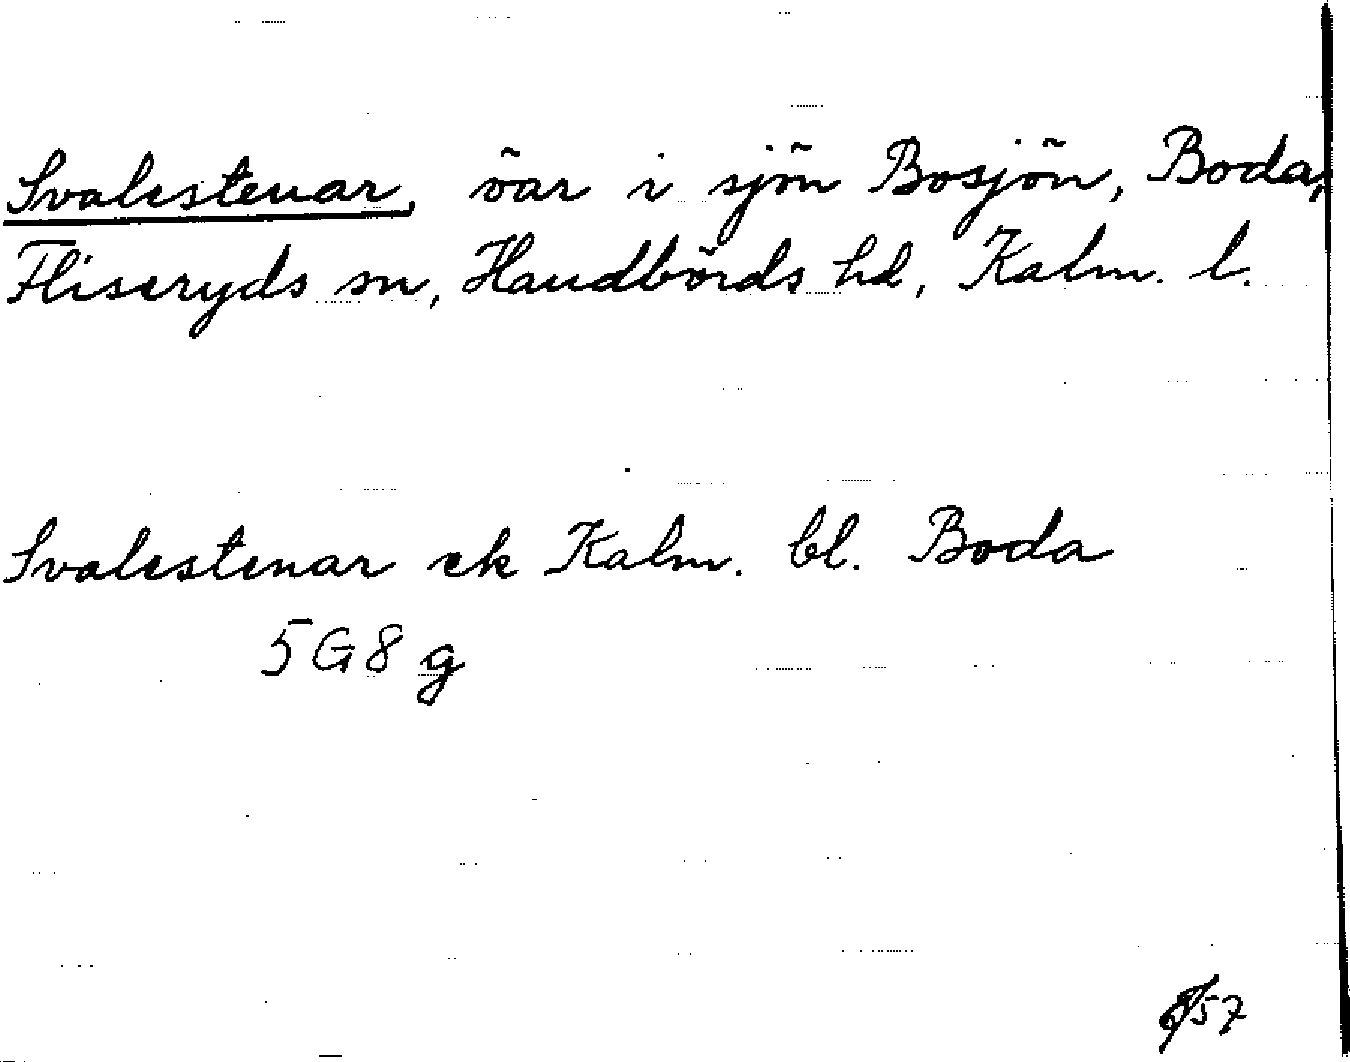 Svalestenar, öar i sjön Bosjön, Boda,
Fliseryds sn, Handbörds hd, Kalm. l.
Svalestenar ek Kalm. bl. Boda
5G8g
57